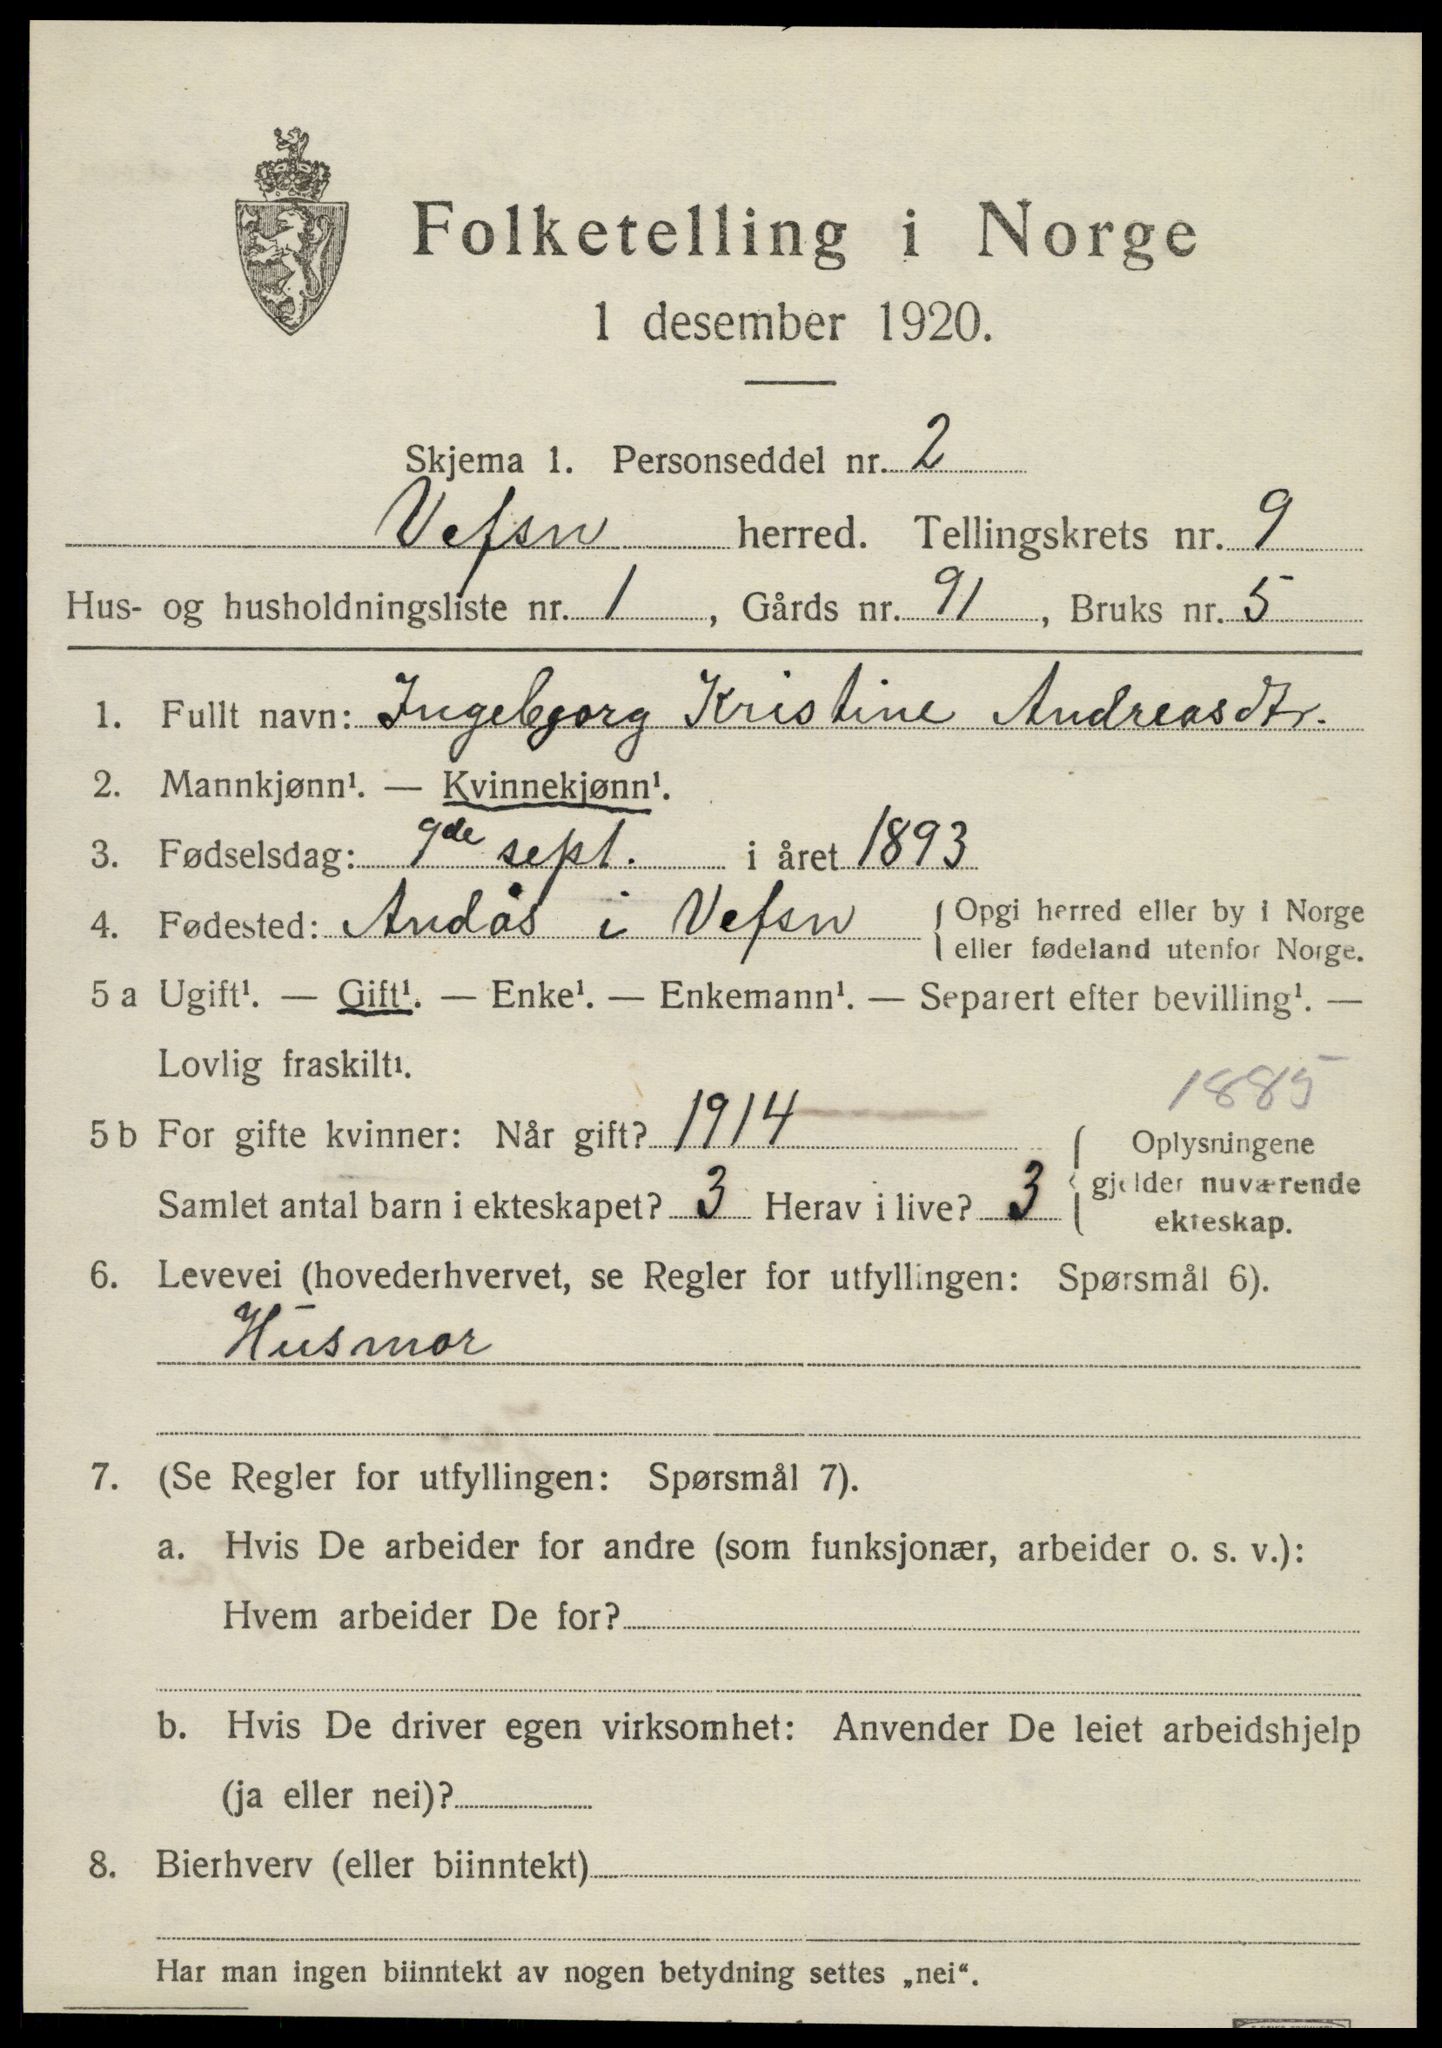 Folketelling i Norge
1 desember 1920.
Skjema 1. Personseddel nr. 2
Vefsn herred. Tellingskrets nr. 9
Hus- og husholdningsliste nr. 1, Gårds nr. 91, Bruks nr. 5
1. Fullt navn: Ingebjørg Kristine Andreasdtr.
2. Mannkjønn¹. — Kvinnekjønn¹.
3. Fødselsdag: 9de sept. i året 1893
4. Fødested: Andås i Vefsn { Opgi herred eller by i Norge
eller fødeland utenfor Norge.
5 a Ugift¹. — Gift¹. — Enke¹. — Enkemann¹. — Separert efter bevilling¹. —
Lovlig fraskilt¹.
1885
5 b For gifte kvinner: Når gift? 1914 { Oplysningene
gjelder nuværende
Samlet antal barn i ekteskapet? 3 Herav i live? 3
ekteskap.
6. Levevei (hovederhvervet, se Regler for utfyllingen: Spørsmål 6).
Husmor
7. (Se Regler for utfyllingen: Spørsmål 7).
a. Hvis De arbeider for andre (som funksjonær, arbeider o. s. v.):
Hvem arbeider De for?
b. Hvis De driver egen virksomhet: Anvender De leiet arbeidshjelp
(ja eller nei)?
8. Bierhverv (eller biinntekt)
Har man ingen biinntekt av nogen betydning settes „nei“.